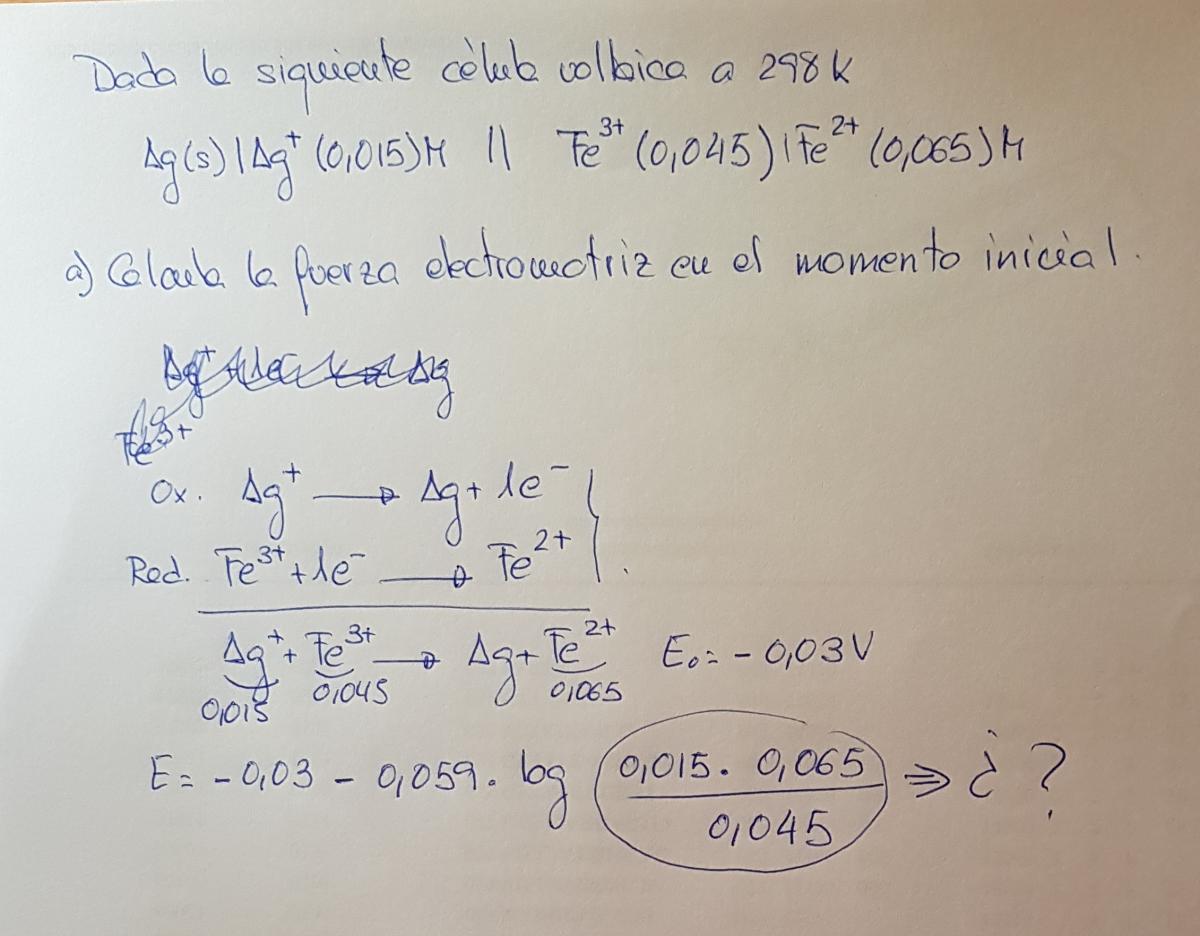 Dada la siguiente célula voltaica a 298 K
Ag(s) | Ag⁺ (0,015) M || Fe³⁺ (0,045) | Fe²⁺ (0,065) M
a) Calcula la fuerza electromotriz en el momento inicial.
Fe³⁺
Ox. Ag⁺ → Ag + 1e⁻
Red. Fe³⁺ + 1e⁻ → Fe²⁺
Ag⁺ + Fe³⁺ → Ag + Fe²⁺ E₀ = - 0,03V
0,015 0,045 0,065
E = - 0,03 - 0,059 · log (0,015 · 0,065 / 0,045) ⇒ ¿?